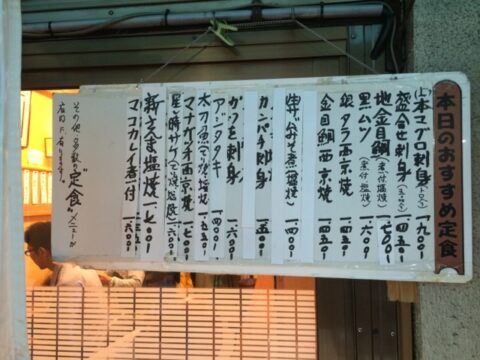 本日のおすすめ定食
(上)本マグロ刺身(トロ) 一九〇〇-
盛合せ刺身(五点) 一四五〇-
地金目鯛(煮付 塩焼) 一七〇〇-
黒ムツ(煮付 塩焼) 一六〇〇-
銀タラ西京焼 一四五〇-
金目鯛西京焼 一四五〇-
みそ煮(塩焼) 一四〇〇-
カンパチ刺身 一五〇〇-
かつを刺身 一六〇〇-
アジタタキ 一四〇〇-
太刀魚 塩焼 一五五〇-
マナガツオ西京焼 一七〇〇-
新さんま塩焼 一七〇〇-
マコガレイ煮付
その他多数の定食がメニューが
店内にあります。